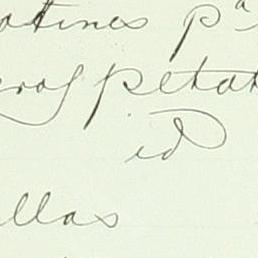 atines pa
petat
id
llas